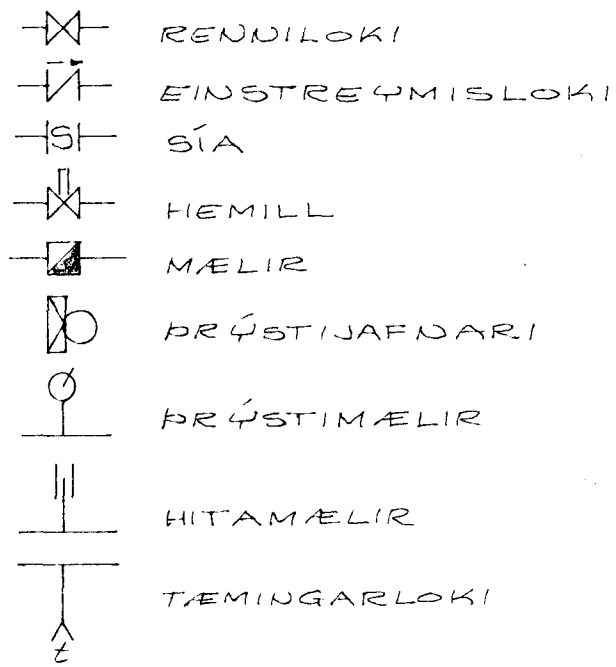 RENNILOKI
EINSTREYMISLOKI
S SÍA
HEMILL
MÆLIR
ÞRÝSTIJAFNARI
ÞRÝSTIMÆLIR
HITAMÆLIR
TÆMINGARLOKI
t